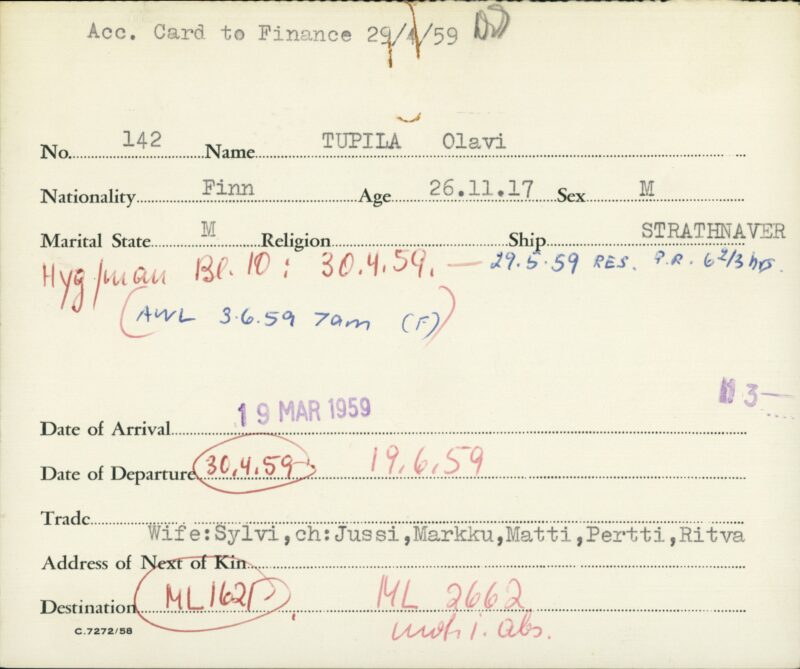 Acc. Card to Finance 29/4/59
No. 142 Name TUPILA Olavi
Nationality Finn Age 26.11.17 Sex M
Marital State M Religion Ship STRATHNAVER
Hyg/man Bl. 10: 30.4.59. — 29.5.59 RES. P.R. 6 2/3 hrs.
(AWL 3.6.59 7am (F))
3—
Date of Arrival 19 MAR 1959
Date of Departure 30.4.59 19.6.59
Trade
Wife:Sylvi,ch:Jussi,Markku,Matti,Pertti,Ritva
Address of Next of Kin
Destination ML 162 ML 2662
abs.
C.7272/58